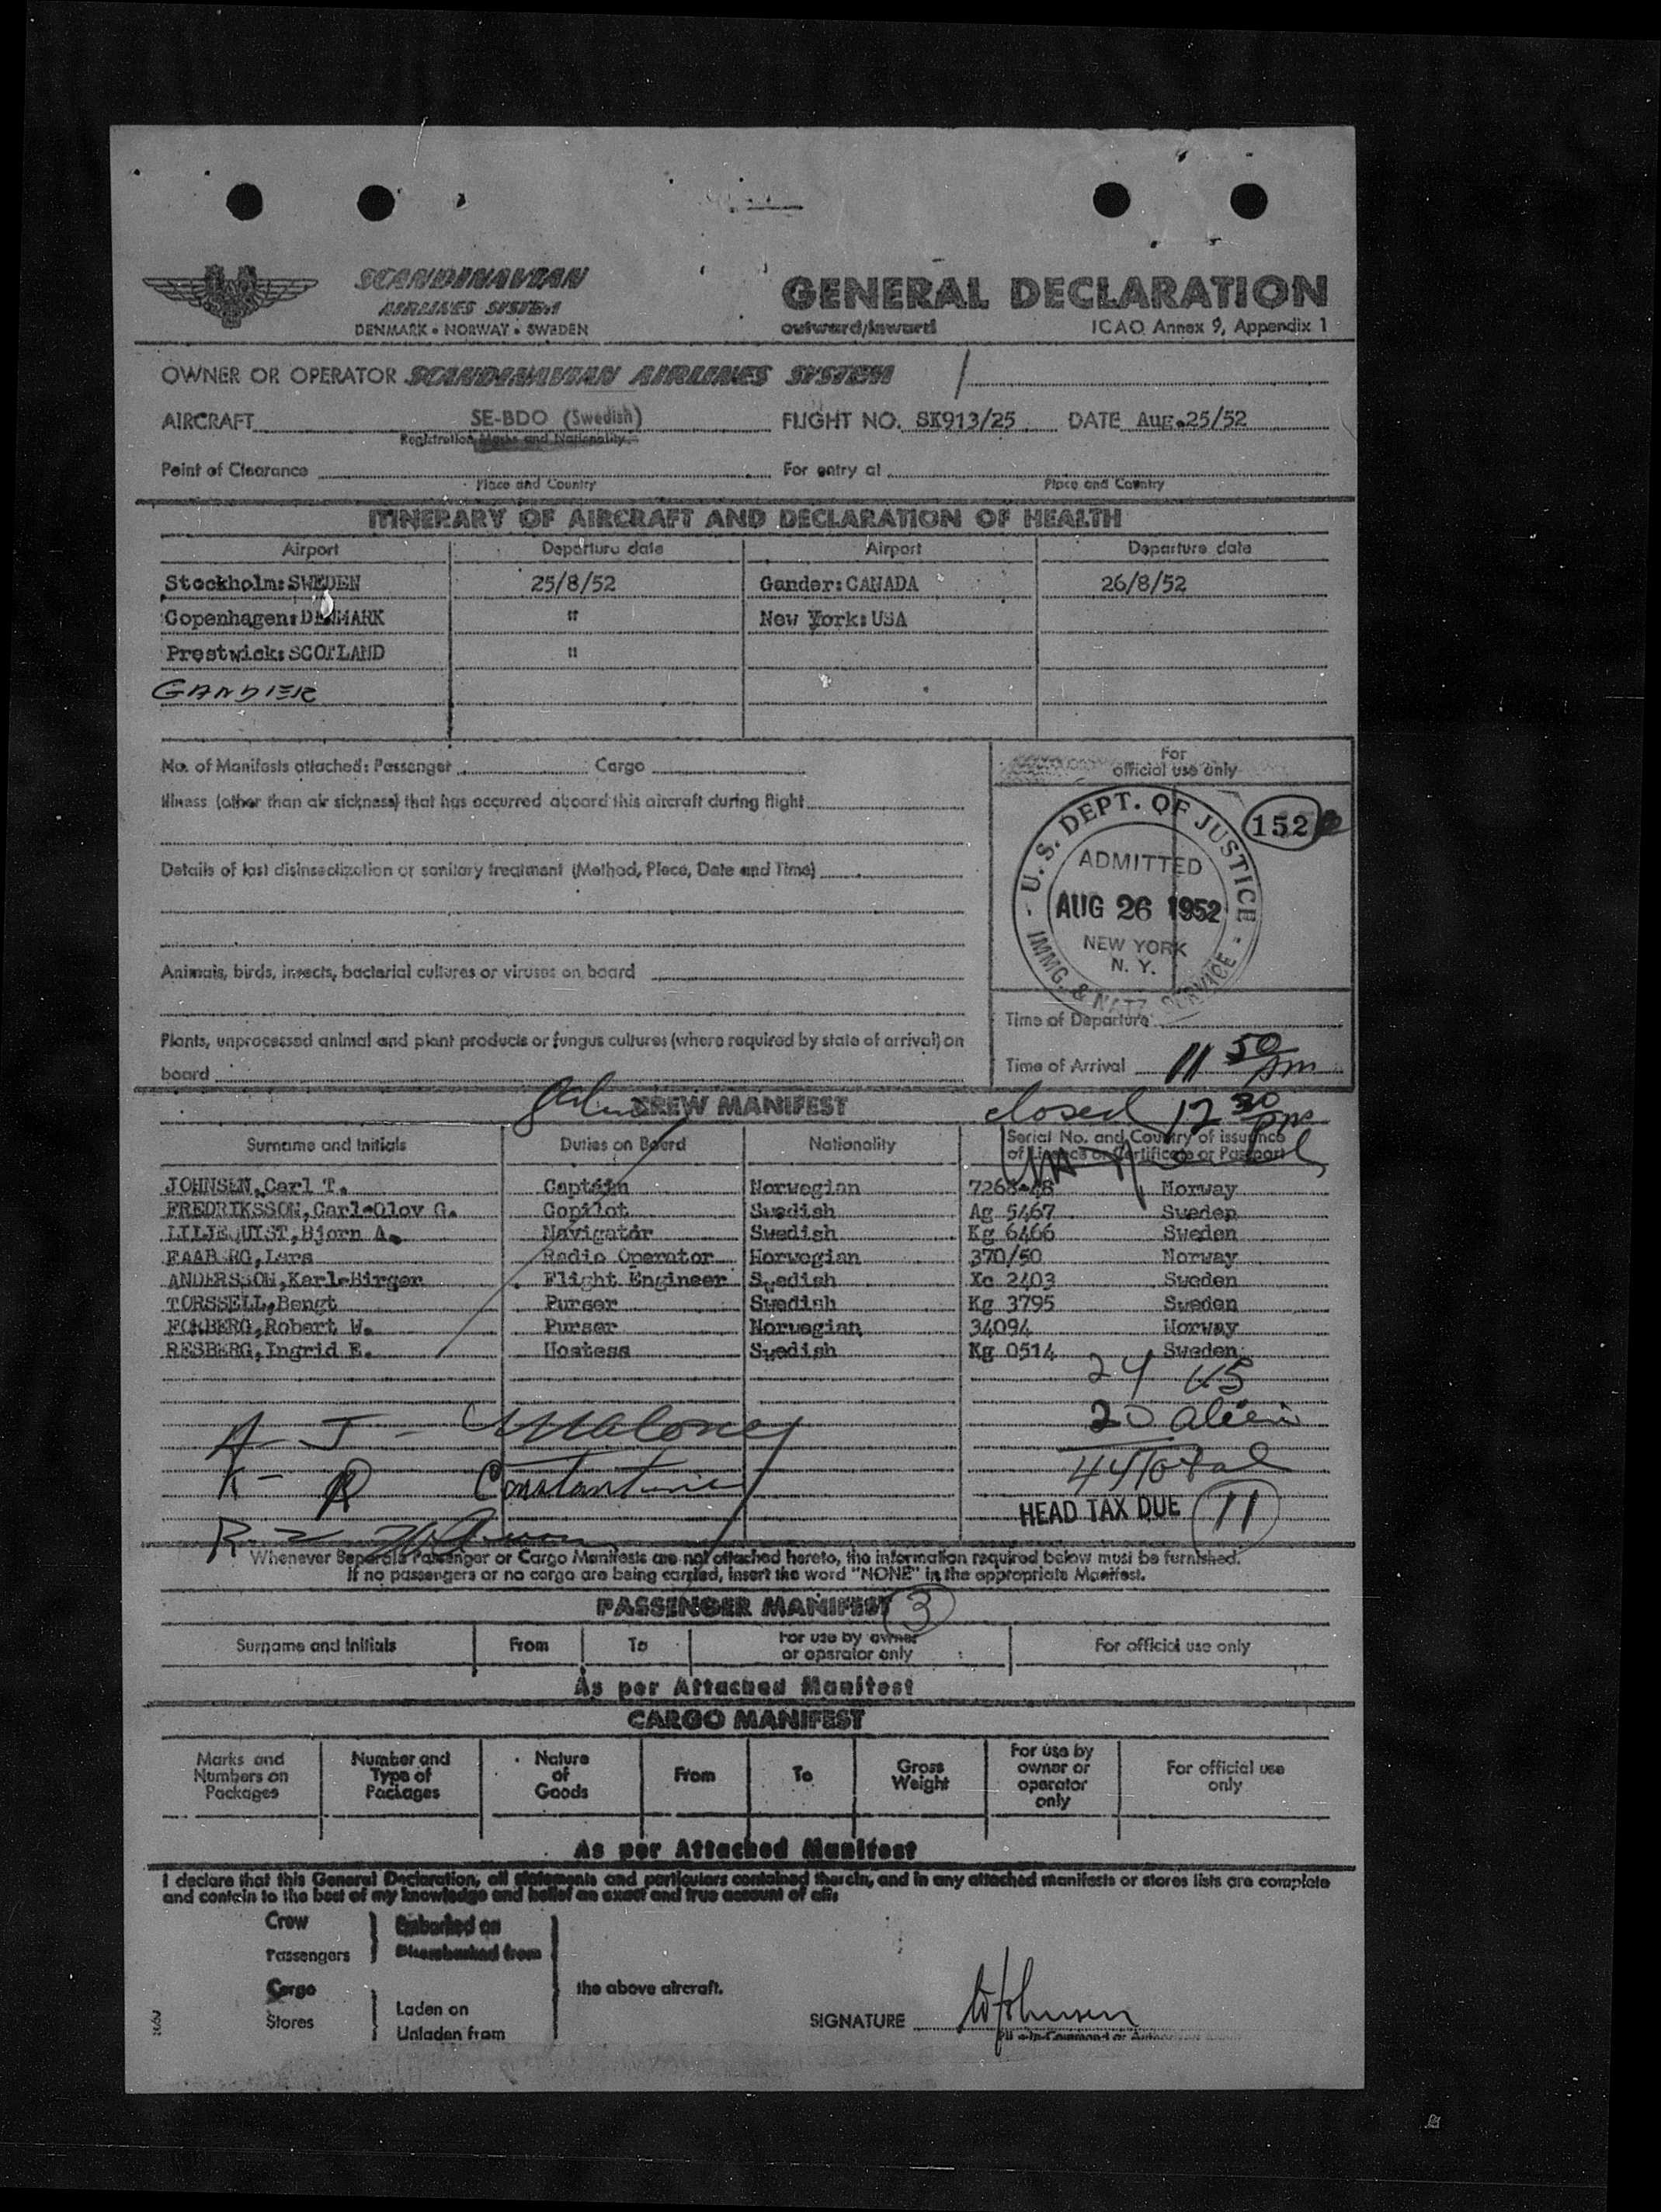 SCANDINAVIAN
AIRLINES SYSTEM
DENMARK • NORWAY • SWEDEN
GENERAL DECLARATION
outward/inward
ICAO Annex 9, Appendix 1
OWNER OR OPERATOR SCANDINAVIAN AIRLINES SYSTEM
AIRCRAFT SE-BDO (Swedish) FLIGHT NO. SK913/25 DATE Aug.25/52
Registration Marks and Nationality
Point of Clearance For entry at
Place and Country Place and Country
ITINERARY OF AIRCRAFT AND DECLARATION OF HEALTH
Airport Departure date Airport Departure date
Stockholm:SWEDEN 25/8/52 Gander:CANADA 26/8/52
Copenhagen:DENMARK " New York:USA
Prestwick:SCOTLAND "
GANDER
No. of Manifests attached: Passenger Cargo
For
official use only
Illness (other than air sickness) that has occurred aboard this aircraft during flight
152
U.S. DEPT. OF JUSTICE
ADMITTED
AUG 26 1952
NEW YORK
N. Y.
IMMG. & NATZ. SERVICE
Details of last disinsectization or sanitary treatment (Method, Place, Date and Time)
Animals, birds, insects, bacterial cultures or viruses on board
Time of Departure
Plants, unprocessed animal and plant products or fungus cultures (where required by state of arrival) on
board
Time of Arrival 11 50 pm
CREW MANIFEST closed 12 30
Surname and Initials Duties on Board Nationality Serial No. and Country of issuance
of Licence or Certificate or Passport
JOHNSEN,Carl T. Captain Norwegian 7268-48 Norway
FREDRIKSSON,Carl-Olov G. Copilot Swedish Ag 5467 Sweden
LILJEQUIST,Bjorn A. Navigator Swedish Kg 6466 Sweden
FAABERG,Lars Radio Operator Norwegian 370/50 Norway
ANDERSSON,Karl-Birger Flight Engineer Swedish Xc 2403 Sweden
TORSSELL,Bengt Purser Swedish Kg 3795 Sweden
FORBERG,Robert W. Purser Norwegian 34094 Norway
RESBERG,Ingrid E. Hostess Swedish Kg 0514 Sweden
24 US
A - J - Maloney 20 alien
K - R Constantine 44 Total
HEAD TAX DUE 11
Whenever Separate Passenger or Cargo Manifests are not attached hereto, the information required below must be furnished.
If no passengers or no cargo are being carried, insert the word "NONE" in the appropriate Manifest.
PASSENGER MANIFEST 3
Surname and Initials From To For use by owner
or operator only For official use only
As per Attached Manifest
CARGO MANIFEST
Marks and
Numbers on
Packages
Number and
Type of
Packages
Nature
of
Goods
From
To
Gross
Weight
For use by
owner or
operator
only
For official use
only
As per Attached Manifest
I declare that this General Declaration, all statements and particulars contained therein, and in any attached manifests or stores lists are complete
and contain to the best of my knowledge and belief an exact and true account of all:
Crew Embarked on
Passengers Disembarked from
Cargo the above aircraft.
Stores Laden on
Unladen from
SIGNATURE